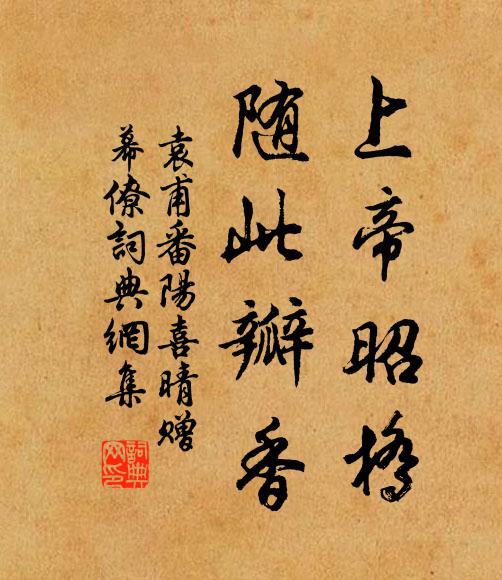 上帝昭橋
随此瓣香
袁甫番陽喜晴贈
幕僚詞典網集
詞典
网印